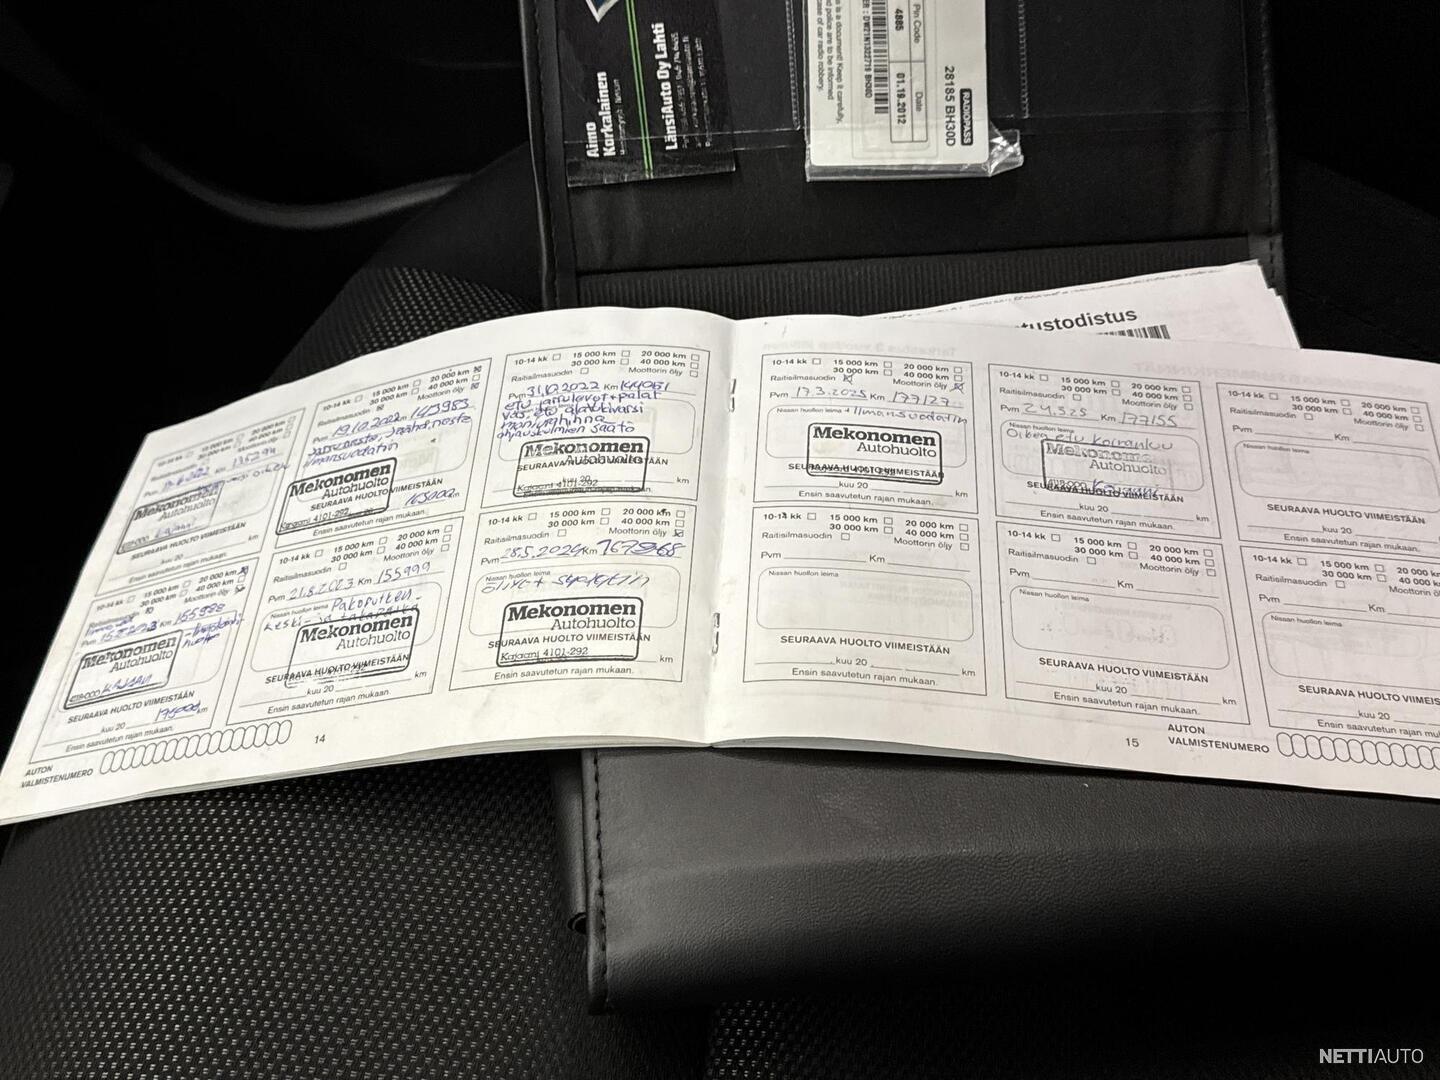 Aimo
Korkalainen
LänsiAuto Oy Lahti
Pin Code
Date
4885
01.19.2012
RADIOPASS
28185 BH30D
tustodistus
10-14 kk 15 000 km 20 000 km
30 000 km 40 000 km
Raitisilmasuodin Moottorin öljy
Pvm Km 135294
Mekonomen
Autohuolto
SEURAAVA HUOLTO VIIMEISTÄÄN
kuu 20 km
Ensin saavutetun rajan mukaan.
10-14 kk 15 000 km 20 000 km
30 000 km 40 000 km
Raitisilmasuodin Moottorin öljy
Pvm 19.10.2022 Km 143983
ilmansuodatin
Mekonomen
Autohuolto
SEURAAVA HUOLTO VIIMEISTÄÄN
Kajaani 4101-292
kuu 20 165000 km
Ensin saavutetun rajan mukaan.
10-14 kk 15 000 km 20 000 km
30 000 km 40 000 km
Raitisilmasuodin Moottorin öljy
Pvm 31.10.2022 Km 144051
etu jarrulevyt + palat
vas. etu alatukivarsi
moniurahihna
ohjauskulmien säätö
Mekonomen
Autohuolto
SEURAAVA HUOLTO VIIMEISTÄÄN
kuu 20
Kajaani 4101-292
Ensin saavutetun rajan mukaan.
10-14 kk 15 000 km 20 000 km
30 000 km 40 000 km
Raitisilmasuodin Moottorin öljy
Pvm Km 155988
Mekonomen
Autohuolto
KAJAANI
SEURAAVA HUOLTO VIIMEISTÄÄN
kuu 20 175000 km
Ensin saavutetun rajan mukaan.
10-14 kk 15 000 km 20 000 km
30 000 km 40 000 km
Raitisilmasuodin Moottorin öljy
Pvm 21.8.2023 Km 155999
Nissan huollon leima Pakoputken
keski- ja takaosa
Mekonomen
Autohuolto
SEURAAVA HUOLTO VIIMEISTÄÄN
kuu 20 km
Ensin saavutetun rajan mukaan.
10-14 kk 15 000 km 20 000 km
30 000 km 40 000 km
Raitisilmasuodin Moottorin öljy
Pvm 28.5.2024 Km
Nissan huollon leima
Mekonomen
Autohuolto
SEURAAVA HUOLTO VIIMEISTÄÄN
Kajaani 4101-292
km
Ensin saavutetun rajan mukaan.
AUTON
VALMISTENUMERO
14
10-14 kk 15 000 km 20 000 km
30 000 km 40 000 km
Raitisilmasuodin Moottorin öljy
Pvm 17.3.2025 Km 177127
Nissan huollon leima + Ilmansuodatin
Mekonomen
Autohuolto
SEURAAVA HUOLTO VIIMEISTÄÄN
kuu 20 km
Ensin saavutetun rajan mukaan.
10-14 kk 15 000 km 20 000 km
30 000 km 40 000 km
Raitisilmasuodin Moottorin öljy
Pvm 24.3.25 Km 177155
Nissan huollon leima
Oikea etu koiranluu
Mekonomen
Autohuolto
Kajaani
SEURAAVA HUOLTO VIIMEISTÄÄN
kuu 20 km
Ensin saavutetun rajan mukaan.
10-14 kk 15 000 km 20 000 km
30 000 km 40 000 km
Raitisilmasuodin Moottorin öljy
Pvm Km
Nissan huollon leima
SEURAAVA HUOLTO VIIMEISTÄÄN
kuu 20
Ensin saavutetun rajan mukaan.
10-14 kk 15 000 km 20 000 km
30 000 km 40 000 km
Raitisilmasuodin Moottorin öljy
Pvm Km
Nissan huollon leima
SEURAAVA HUOLTO VIIMEISTÄÄN
kuu 20 km
Ensin saavutetun rajan mukaan.
10-14 kk 15 000 km 20 000 km
30 000 km 40 000 km
Raitisilmasuodin Moottorin öljy
Pvm Km
Nissan huollon leima
SEURAAVA HUOLTO VIIMEISTÄÄN
kuu 20 km
Ensin saavutetun rajan mukaan.
10-14 kk 15 000 km 20 000 km
30 000 km
Raitisilmasuodin Moottorin
Pvm Km
Nissan huollon leima
SEURAAVA HUOLTO VIIMEIS
kuu 20
Ensin saavutetun rajan
15
AUTON
VALMISTENUMERO
NETTIAUTO